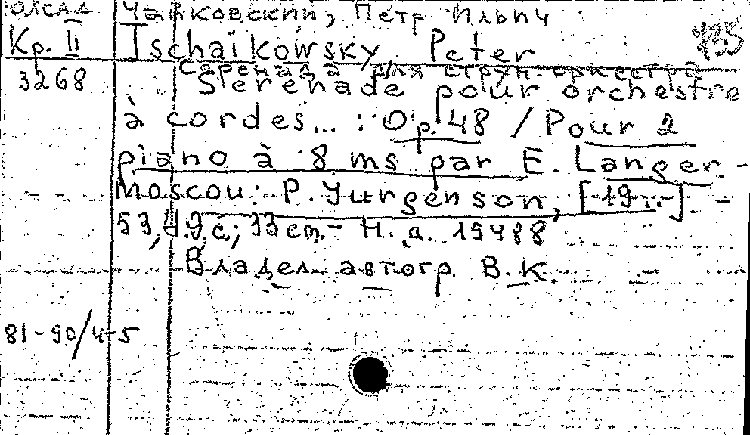 Чайковский, Петр Ильич
Кр. II Tschaikowsky Peter
3268 Серенада для струн. оркестра
Serenade pour orchestre
à cordes... : Op. 48 / Pour 2
piano à 8 ms par E. Langer. -
Moscou: P. Jurgenson, [19..] -
53, 49 с; 33 cm. - Н. д. 19488
Владел. автогр. В. К.
81-90/4-5